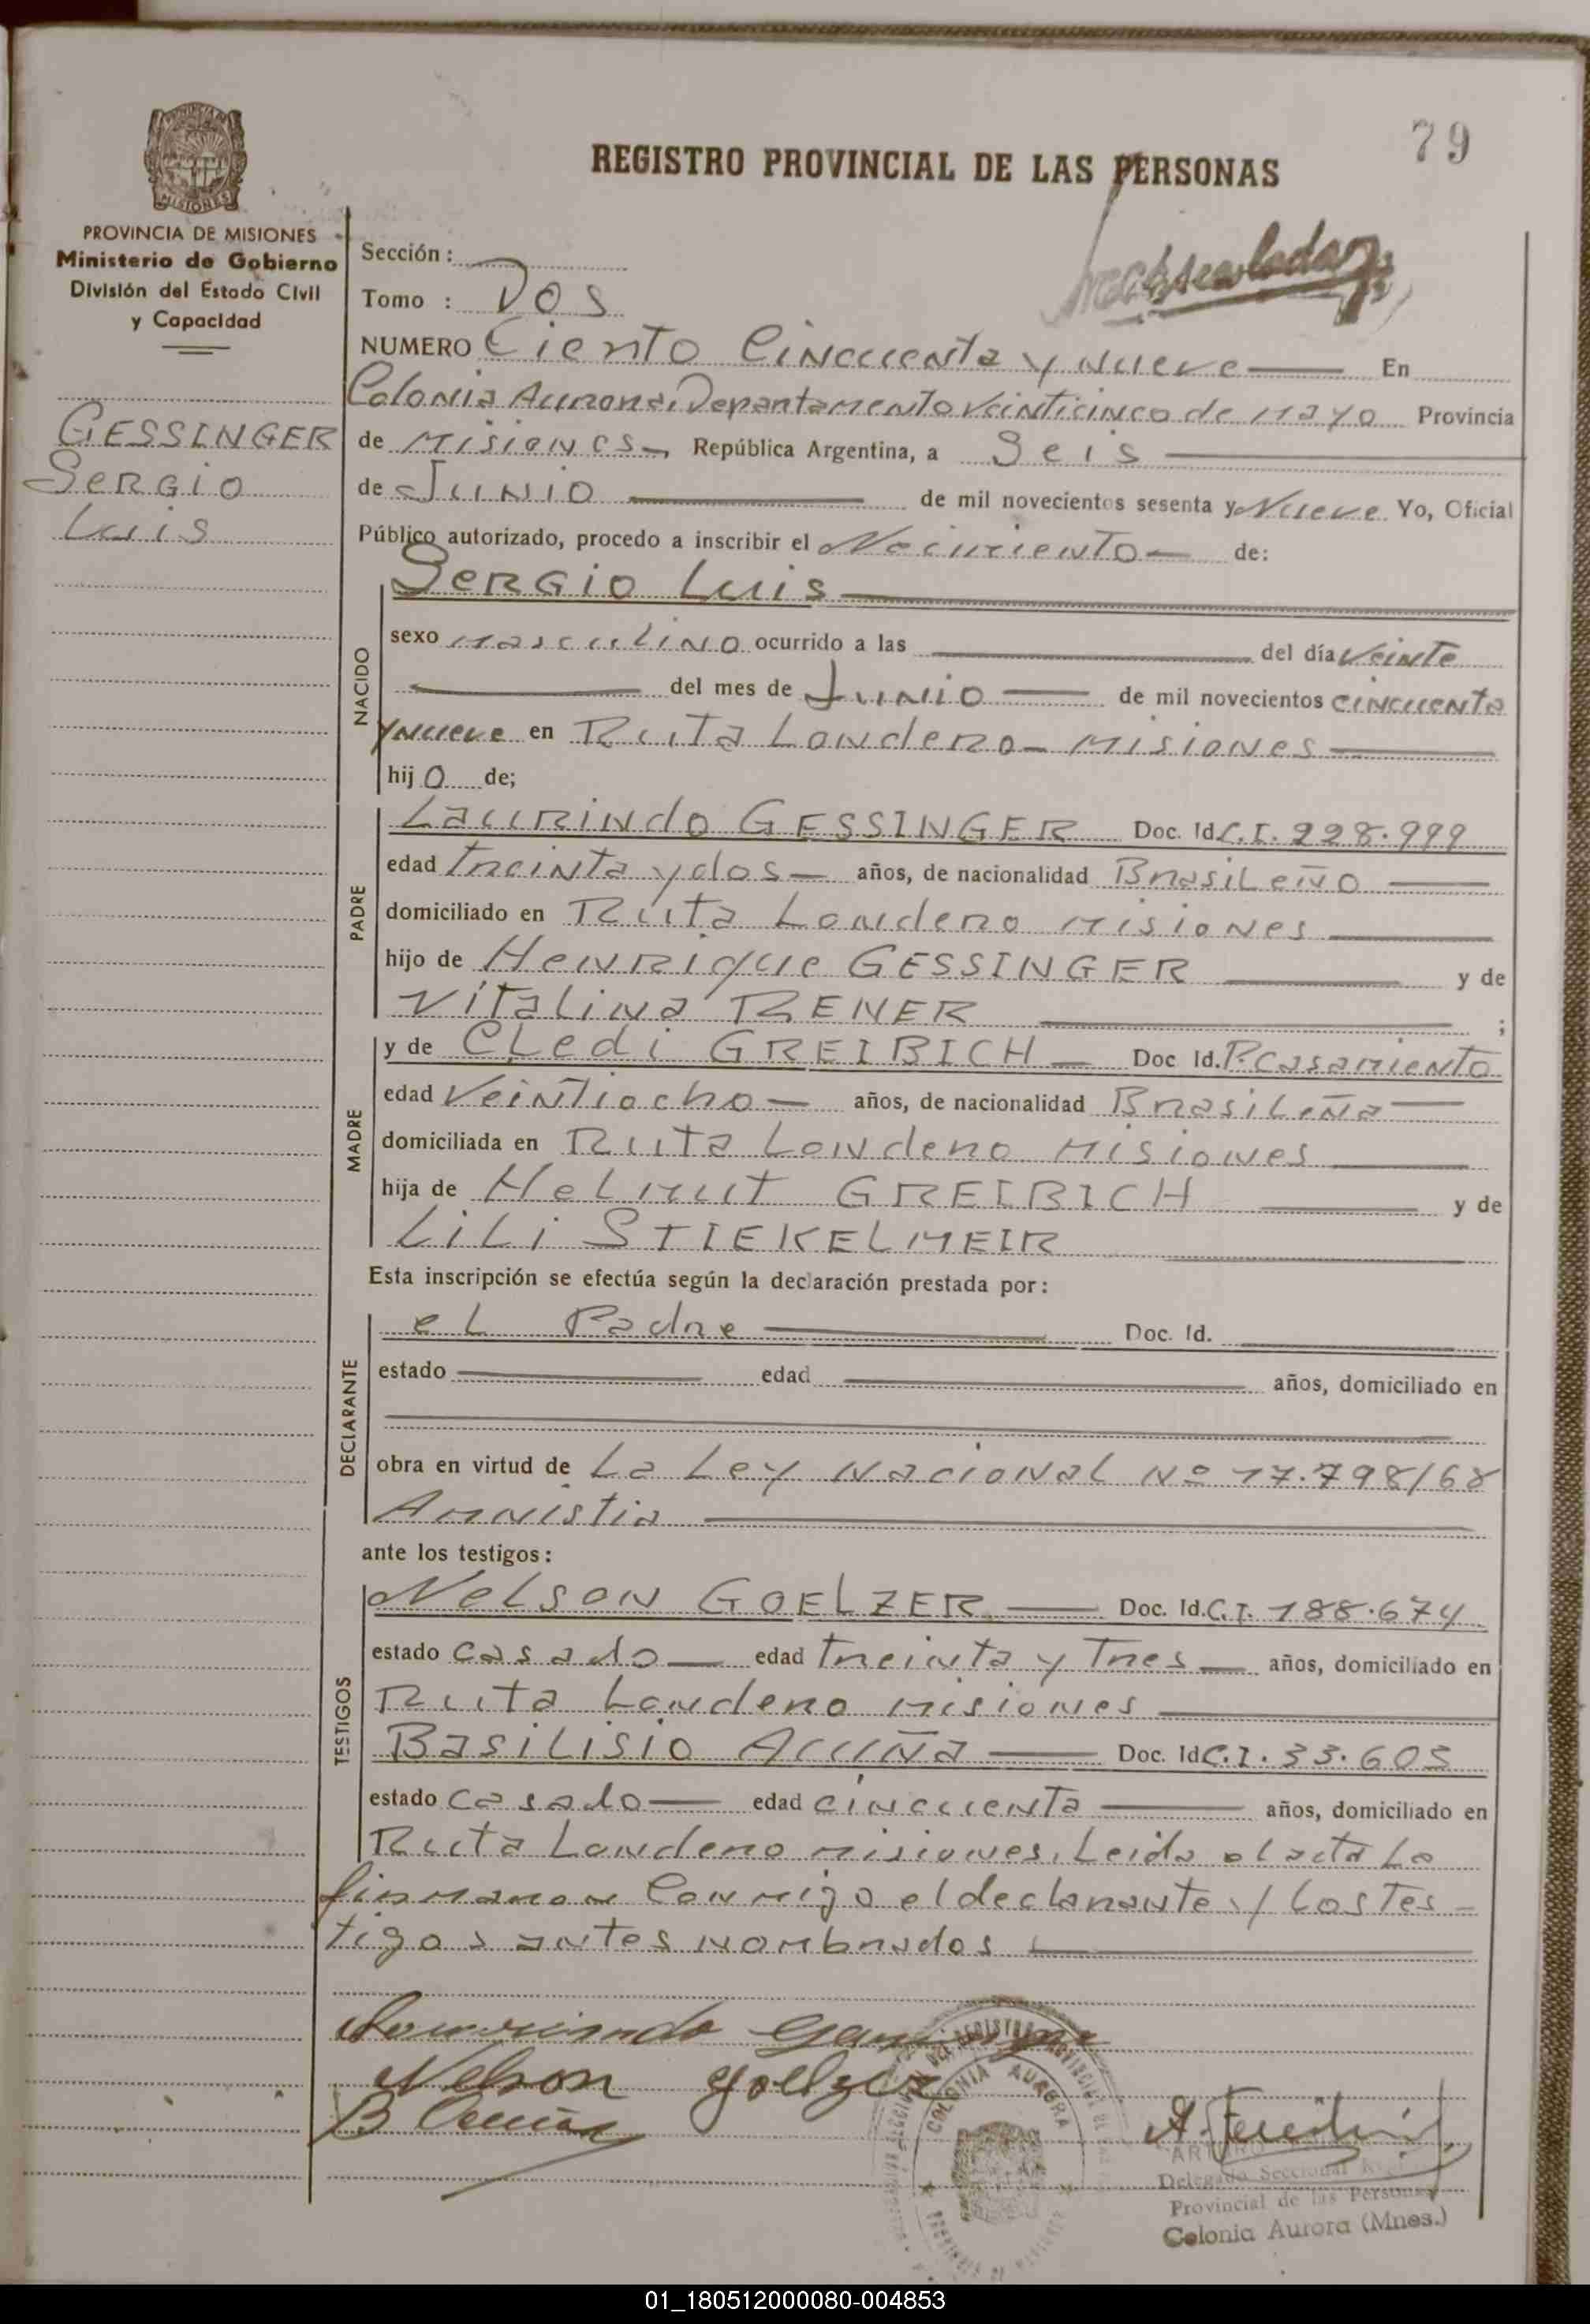 79
REGISTRO PROVINCIAL DE LAS PERSONAS
PROVINCIA DE MISIONES
Ministerio de Gobierno
División del Estado Civil
y Capacidad
GESSINGER
Sergio
Luis
Sección :
Tomo : DOS
NUMERO Ciento Cincuenta y nueve En
Colonia Aurora, Departamento Veinticinco de Mayo Provincia
de Misiones República Argentina, a Seis
de Junio de mil novecientos sesenta y Nueve Yo, Oficial
Público autorizado, procedo a inscribir el Nacimiento de:
NACIDO
Sergio Luis
sexo masculino ocurrido a las del día Veinte
del mes de Junio de mil novecientos cincuenta
y nueve en Ruta Londero - Misiones
hijo de;
PADRE
Laurindo GESSINGER Doc. Id C.I. 228.999
edad treinta y dos años, de nacionalidad Brasileño
domiciliado en Ruta Londero Misiones
hijo de Henrique GESSINGER y de
Vitalina RENER ;
MADRE
y de Cledi GREIBICH Doc Id. P. Casamiento
edad Veintiocho años, de nacionalidad Brasileña
domiciliada en Ruta Londero Misiones
hija de Helmut GREIBICH y de
Lili STIEKELMEIR
Esta inscripción se efectúa según la declaración prestada por:
DECLARANTE
el Padre Doc. Id.
estado edad años, domiciliado en
obra en virtud de La Ley Nacional Nº 17.798/68
Amnistia
ante los testigos:
TESTIGOS
Nelson GOELZER Doc. Id. C.I. 188.674
estado casado edad treinta y Tres años, domiciliado en
Ruta Londero Misiones
Basilisio Acuña Doc. Id C.I. 33.603
estado casado edad cincuenta años, domiciliado en
Ruta Londero Misiones, Leida el acta La
firmaron Conmigo el declarante y Los Tes-
tigos antes nombrados
Laurindo Gessinger
Nelson Goelzer
B Acuña
COLONIA AURORA
ARTURO
Delegado Seccional
Provincial de las Personas
Colonia Aurora (Mnes.)
01_180512000080-004853